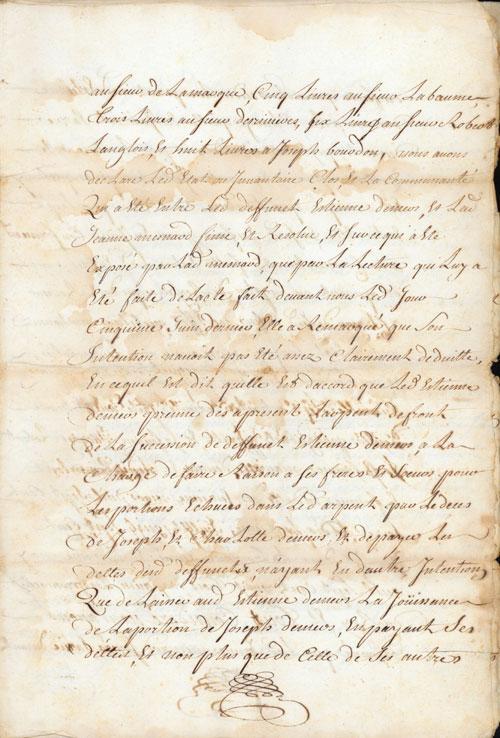 au sieur de Lamarque, Cinq Livres au sieur Labaume,
Trois Livres au sieur derivieres, six Livres au sieur Robert
Langlois, et huit Livres a Joseph bourdon, nous avons
declare Led Estat ou Inuantaire Clos et La Communauté
Qui a Eté Entre Led deffunct Estienne demers, et Lad
Jeanne menard finie, et Resolue, et sur ce qui a Eté
Exposé par Lad menard, que par La Lecture qui Luy a
Eté faite de Lacte fait devant nous Led Jour
Cinquieme Juin dernier Elle a Remarqué que Son
Intention navoit pas Eté assez Clairement deduitte,
En ce quil Est dit quelle Est daccord que Led Estienne
demers prenne des apresent Larpent de front
de La succession de deffunct Estienne demers, a La
Charge de faire Raison a ses freres et soeurs pour
Les portions Echues dans Led arpent par Le deces
de Joseph, et Charlotte demers, et de payer Les
dettes desd deffuncts, nayant En dautre Intention
Que de Laisser aud Estienne demers La Joüissance
de La portion de Joseph demers, En payant Ses
dettes, et non plus que de Celle de Ses autres